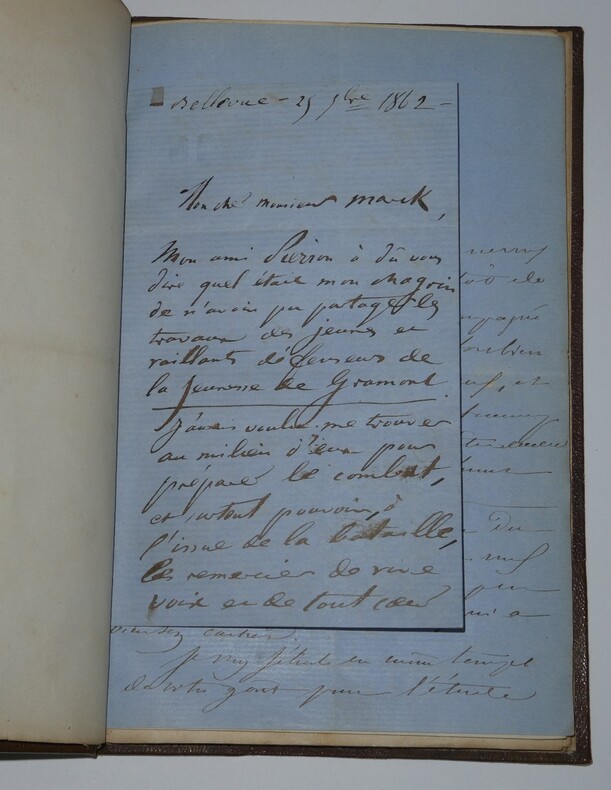 Bellevue – 25 9bre 1862 –
Mon cher monsieur Marck,
Mon ami Pierron à dû vous
dire quel était mon chagrin
de n'avoir pu partager les
travaux des jeunes et
vaillants défenseurs de
la Jeunesse de Gramont.
J'avais voulu me trouver
au milieu d'eux pour
préparer le combat,
et surtout pouvoir, à
l'issue de la bataille,
les remercier de vive
voix et de tout cœur
du
a
Je me félicite en même temps
de votre goût pour l'étude